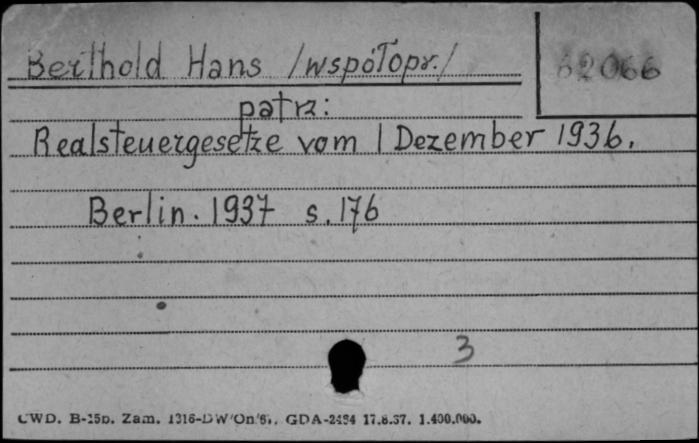 Berthold Hans /współopr./
62066
patrz:
Realsteuergesetze vom 1 Dezember 1936.
Berlin. 1937 s. 176
3
CWD. B-15b. Zam. GDA-2454 17.8.57. 1.400.000.